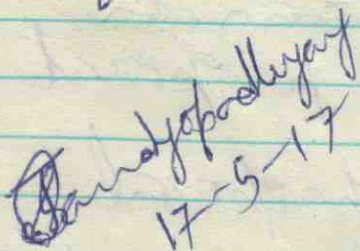 Bandyopadhyay
17-5-17